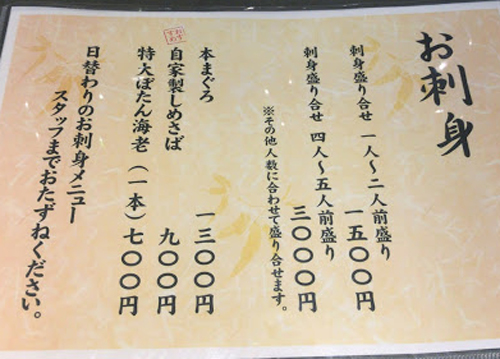 お刺身
刺身盛り合せ 一人～二人前盛り
一五〇〇円
刺身盛り合せ 四人～五人前盛り
三〇〇〇円
※その他人数に合わせて盛り合せます。
本まぐろ 一三〇〇円
おすすめ
自家製しめさば 九〇〇円
特大ぼたん海老(一本)七〇〇円
日替わりのお刺身メニュー
スタッフまでおたずねください。